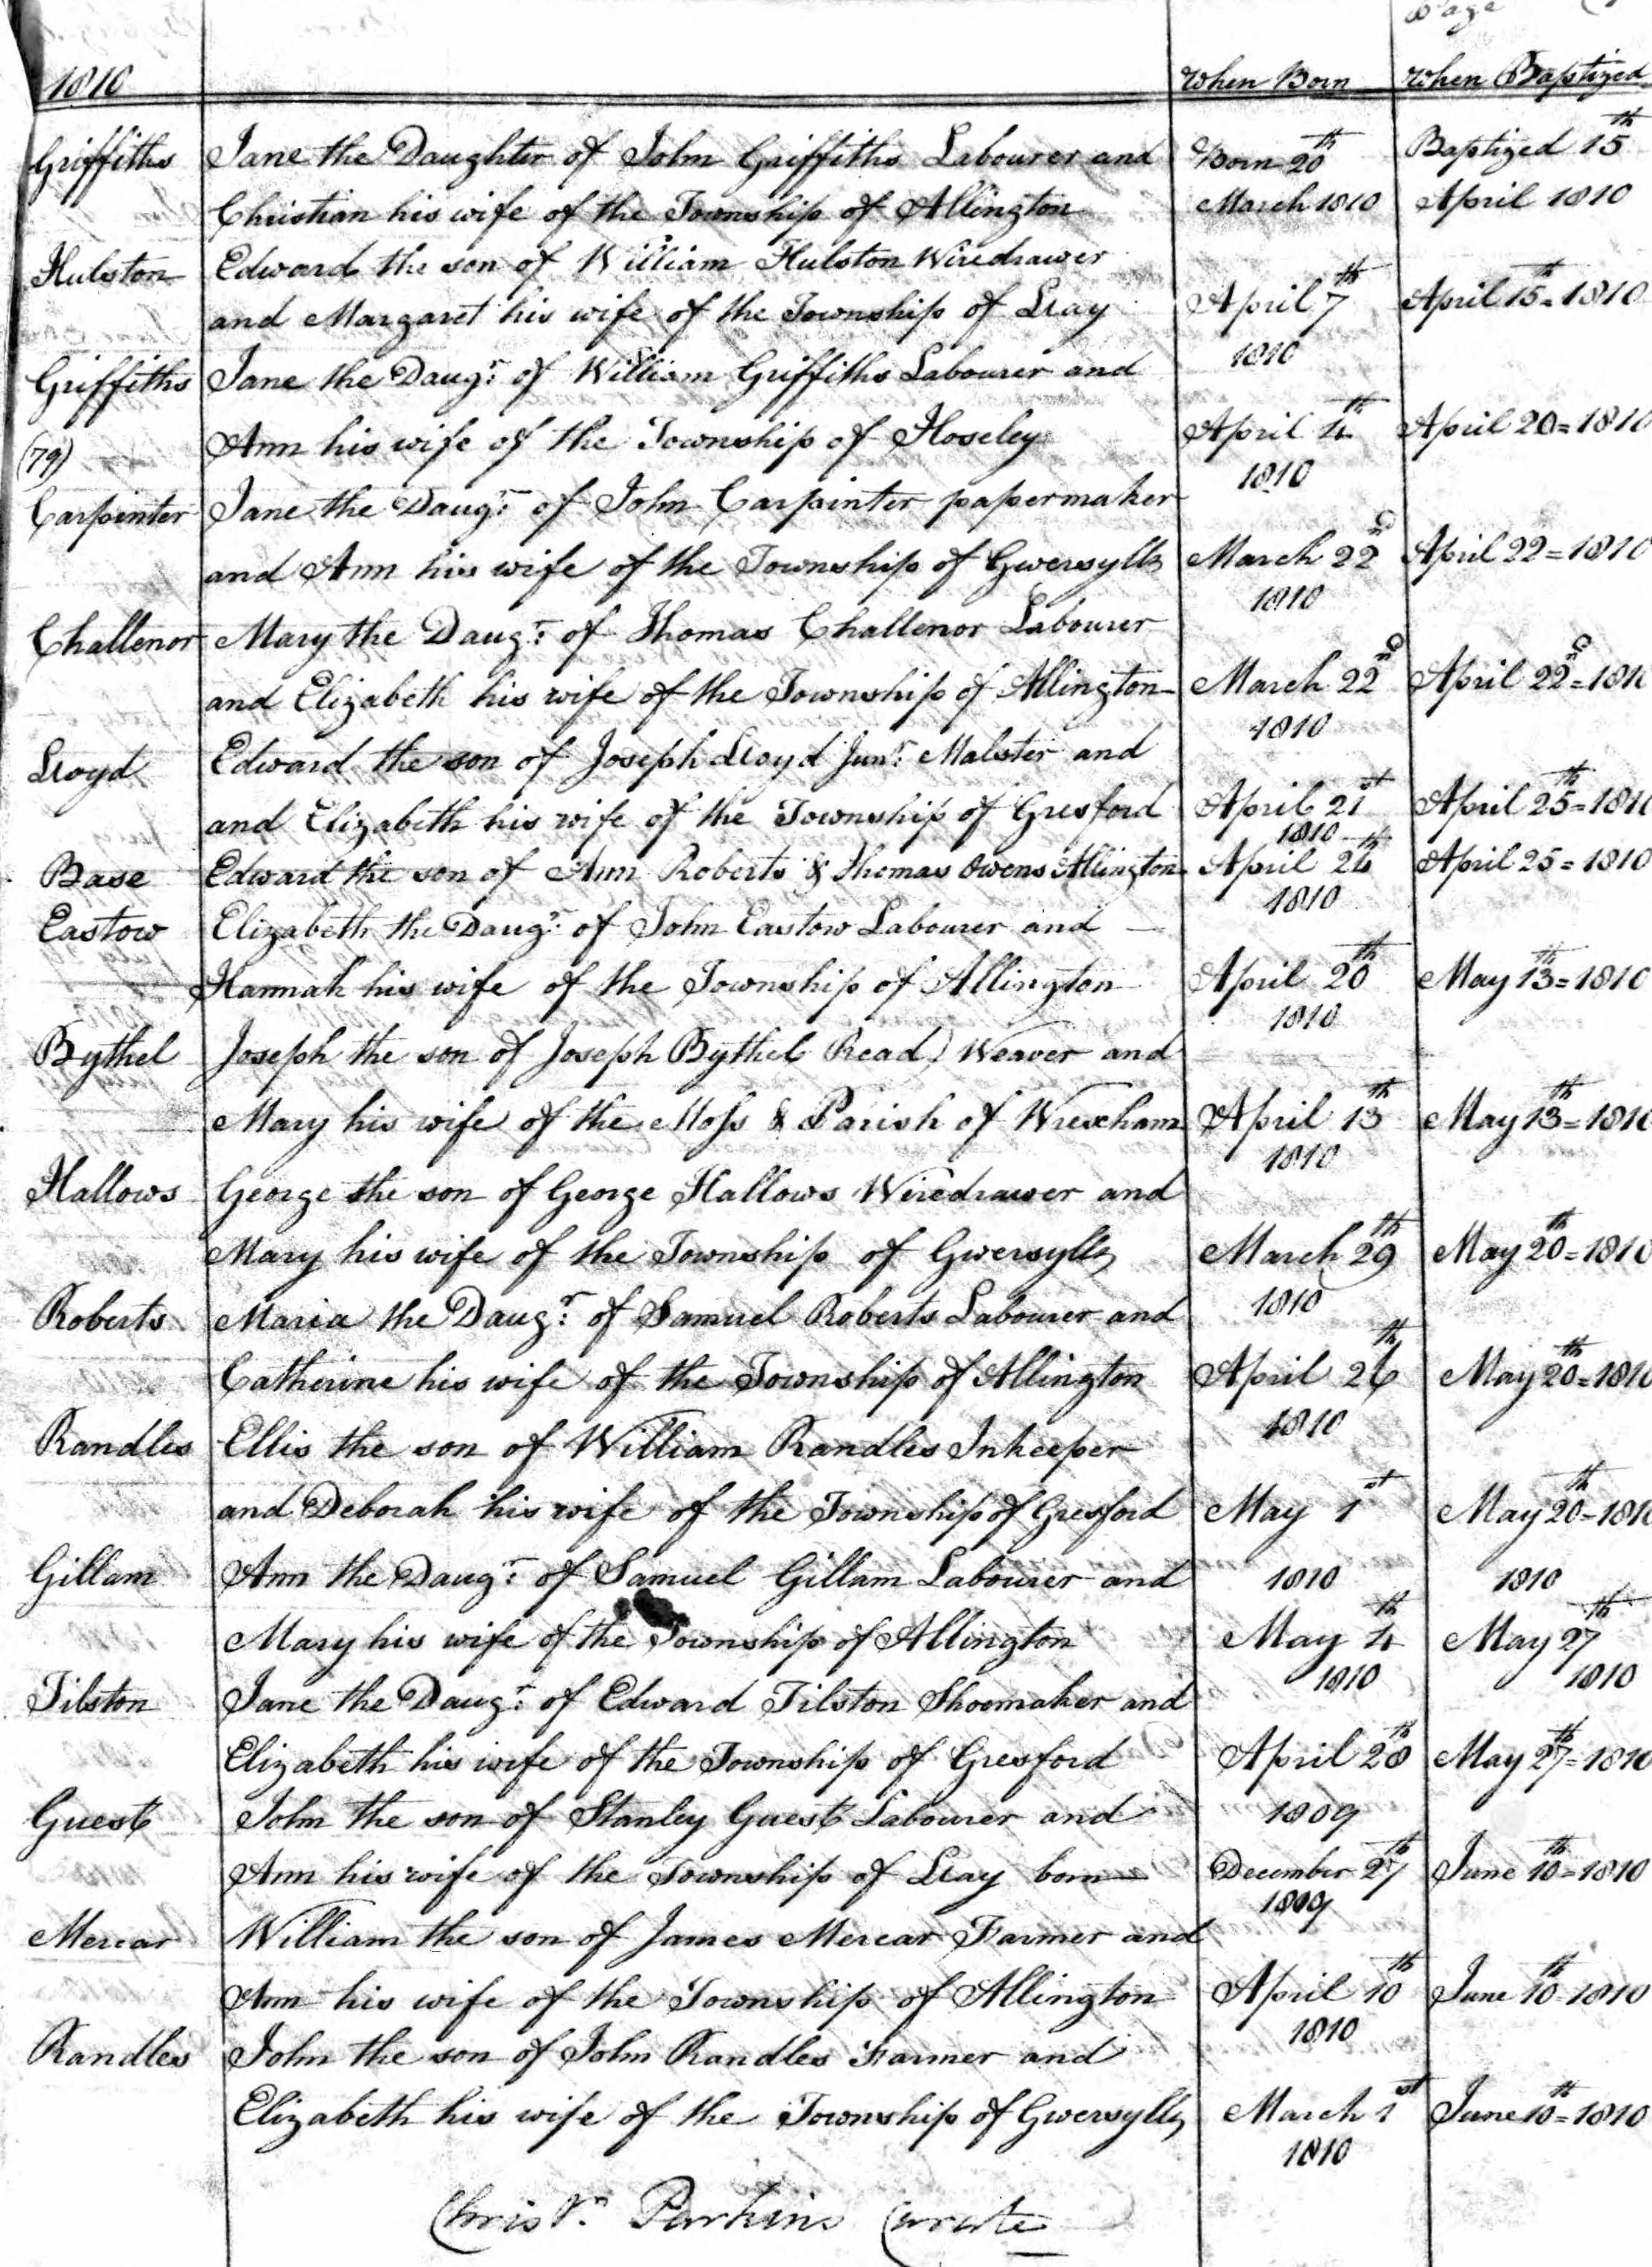 Page
1810 When Born When Baptized
Griffiths Jane the Daughter of John Griffiths Labourer and Born 20th Baptized 15th
Christian his wife of the Township of Allington March 1810 April 1810
Hulston Edward the son of William Hulston Wiredrawer
and Margaret his wife of the Township of Llay April 7th April 15th = 1810
1810
Griffiths Jane the Daugr: of William Griffiths Labourer and
(79) Ann his wife of the Township of Hoseley April 4th April 20 = 1810
1810
Carpinter Jane the Daugr: of John Carpinter papermaker
and Ann his wife of the Township of Gwersyllt March 22nd April 22 = 1810
1810
Challenor Mary the Daugr: of Thomas Challenor Labourer
and Elizabeth his wife of the Township of Allington March 22nd April 22nd = 1810
1810
Lloyd Edward the son of Joseph Lloyd Junr: Malster and
and Elizabeth his wife of the Township of Gresford April 21st April 25th = 1810
1810
Base Edward the son of Ann Roberts & Thomas Owens Allington April 24th April 25 = 1810
1810
Eastow Elizabeth the Daugr: of John Eastow Labourer and
Hannah his wife of the Township of Allington April 20th May 13th = 1810
1810
Bythel Joseph the son of Joseph Bythel (Read) Weaver and
Mary his wife of the Moss & Parish of Wrexham April 13th May 13th = 1810
1810
Hallows George the son of George Hallows Wiredrawer and
Mary his wife of the Township of Gwersyllt March 29th May 20th = 1810
1810
Roberts Maria the Daugr: of Samuel Roberts Labourer and
Catherine his wife of the Township of Allington April 26th May 20th = 1810
1810
Randles Ellis the son of William Randles Inkeeper
and Deborah his wife of the Township of Gresford May 1st May 20th = 1810
Gillam Ann the Daugr: of Samuel Gillam Labourer and 1810 1810
Mary his wife of the Township of Allington May 4th May 27th
1810 1810
Tilston Jane the Daugr: of Edward Tilston Shoemaker and
Elizabeth his wife of the Township of Gresford April 28th May 27th = 1810
Guest John the son of Stanley Guest Labourer and 1809
Ann his wife of the Township of Llay born December 27th June 10th = 1810
1809
Merear William the son of James Merear Farmer and
Ann his wife of the Township of Allington April 10th June 10th 1810
1810
Randles John the son of John Randles Farmer and
Elizabeth his wife of the Township of Gwersyllt March 1st June 10th = 1810
1810
Chrisr. Parkins Curate